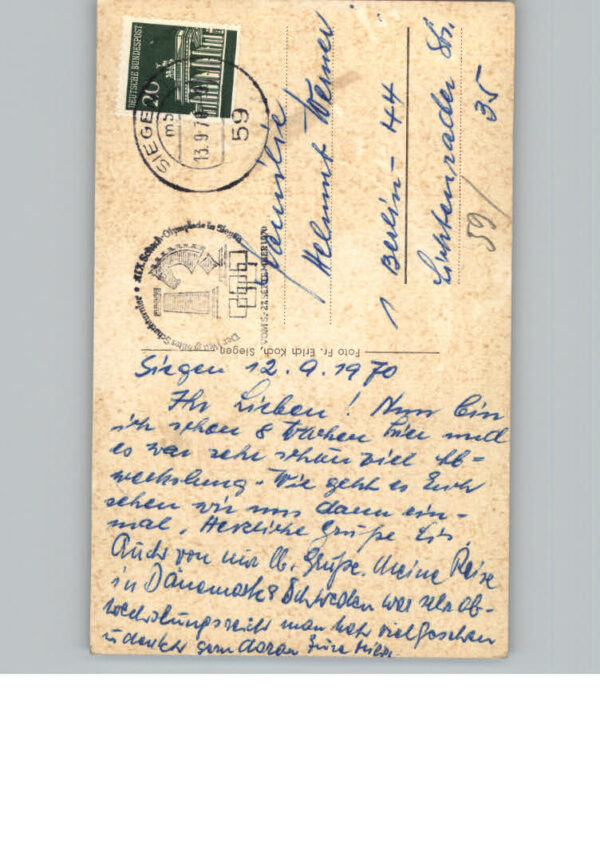 DEUTSCHE BUNDESPOST
20
59
SIEGEN
13.9.70
XIX. Schach-Olympiade in Siegen
Familie
Helmut Werner
1 Berlin-44
Lichtenrader Str.
35
59/
Foto Fr. Erich Koch, Siegen
Siegen 12.9.1970
Ihr Lieben! Nun bin
ich schon 8 Wochen hier und
es war sehr schön viel Ab=
wechslung. Wie geht es Euch
sehen wir uns dann ein-
mal. Herzliche Grüße
Auch von mir lb. Grüße. Meine Reise
in Dänemark & Schweden war sehr ab-
wechslungsreich man hat viel gesehen
u denkt gern daran Eure